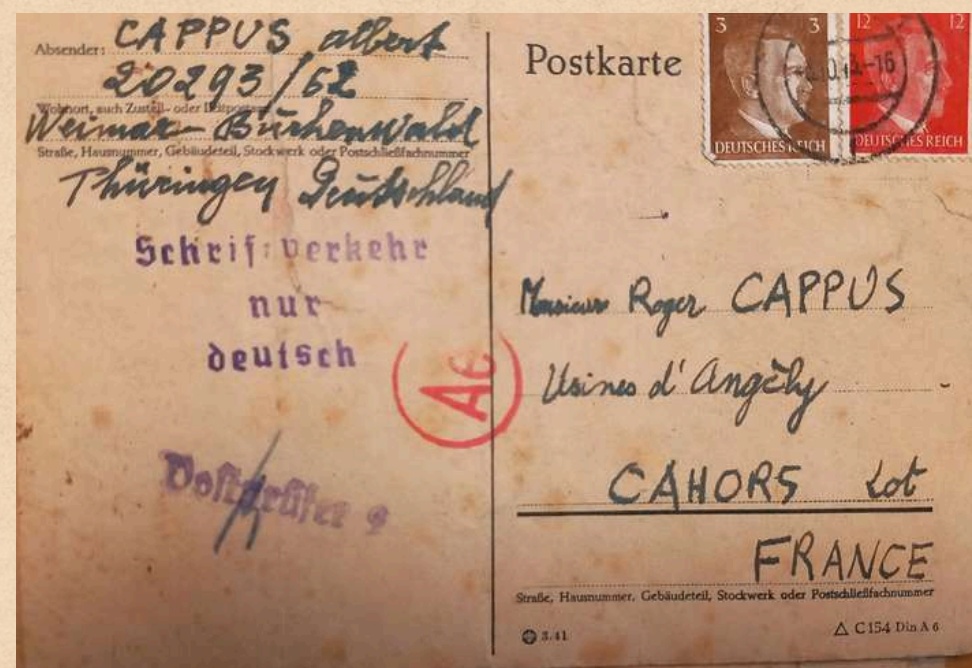 Absender: CAPPUS albert
20293/62
Wohnort, auch Zustell- oder Leitpostamt
Weimar-Buchenwald
Straße, Hausnummer, Gebäudeteil, Stockwerk oder Postschließfachnummer
Thüringen Deutschland
Schriftverkehr
nur
deutsch
Postprüfer 9
A6
Postkarte
3 3
DEUTSCHES REICH
12 12
DEUTSCHES REICH
Monsieur Roger CAPPUS
Usines d'Angély
CAHORS Lot
FRANCE
Straße, Hausnummer, Gebäudeteil, Stockwerk oder Postschließfachnummer
3.41
C 154 Din A 6